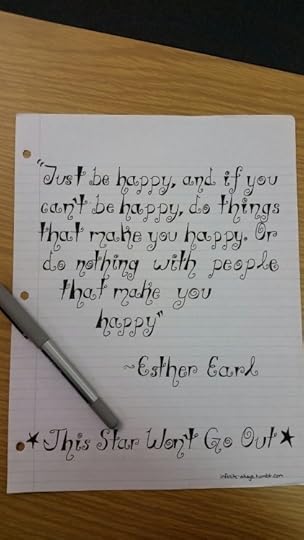 "Just be happy, and if you
can't be happy, do things
that make you happy. Or
do nothing with people
that make you
happy"
~Esther Earl
★This Star Won't Go Out★
infinite-okays.tumblr.com